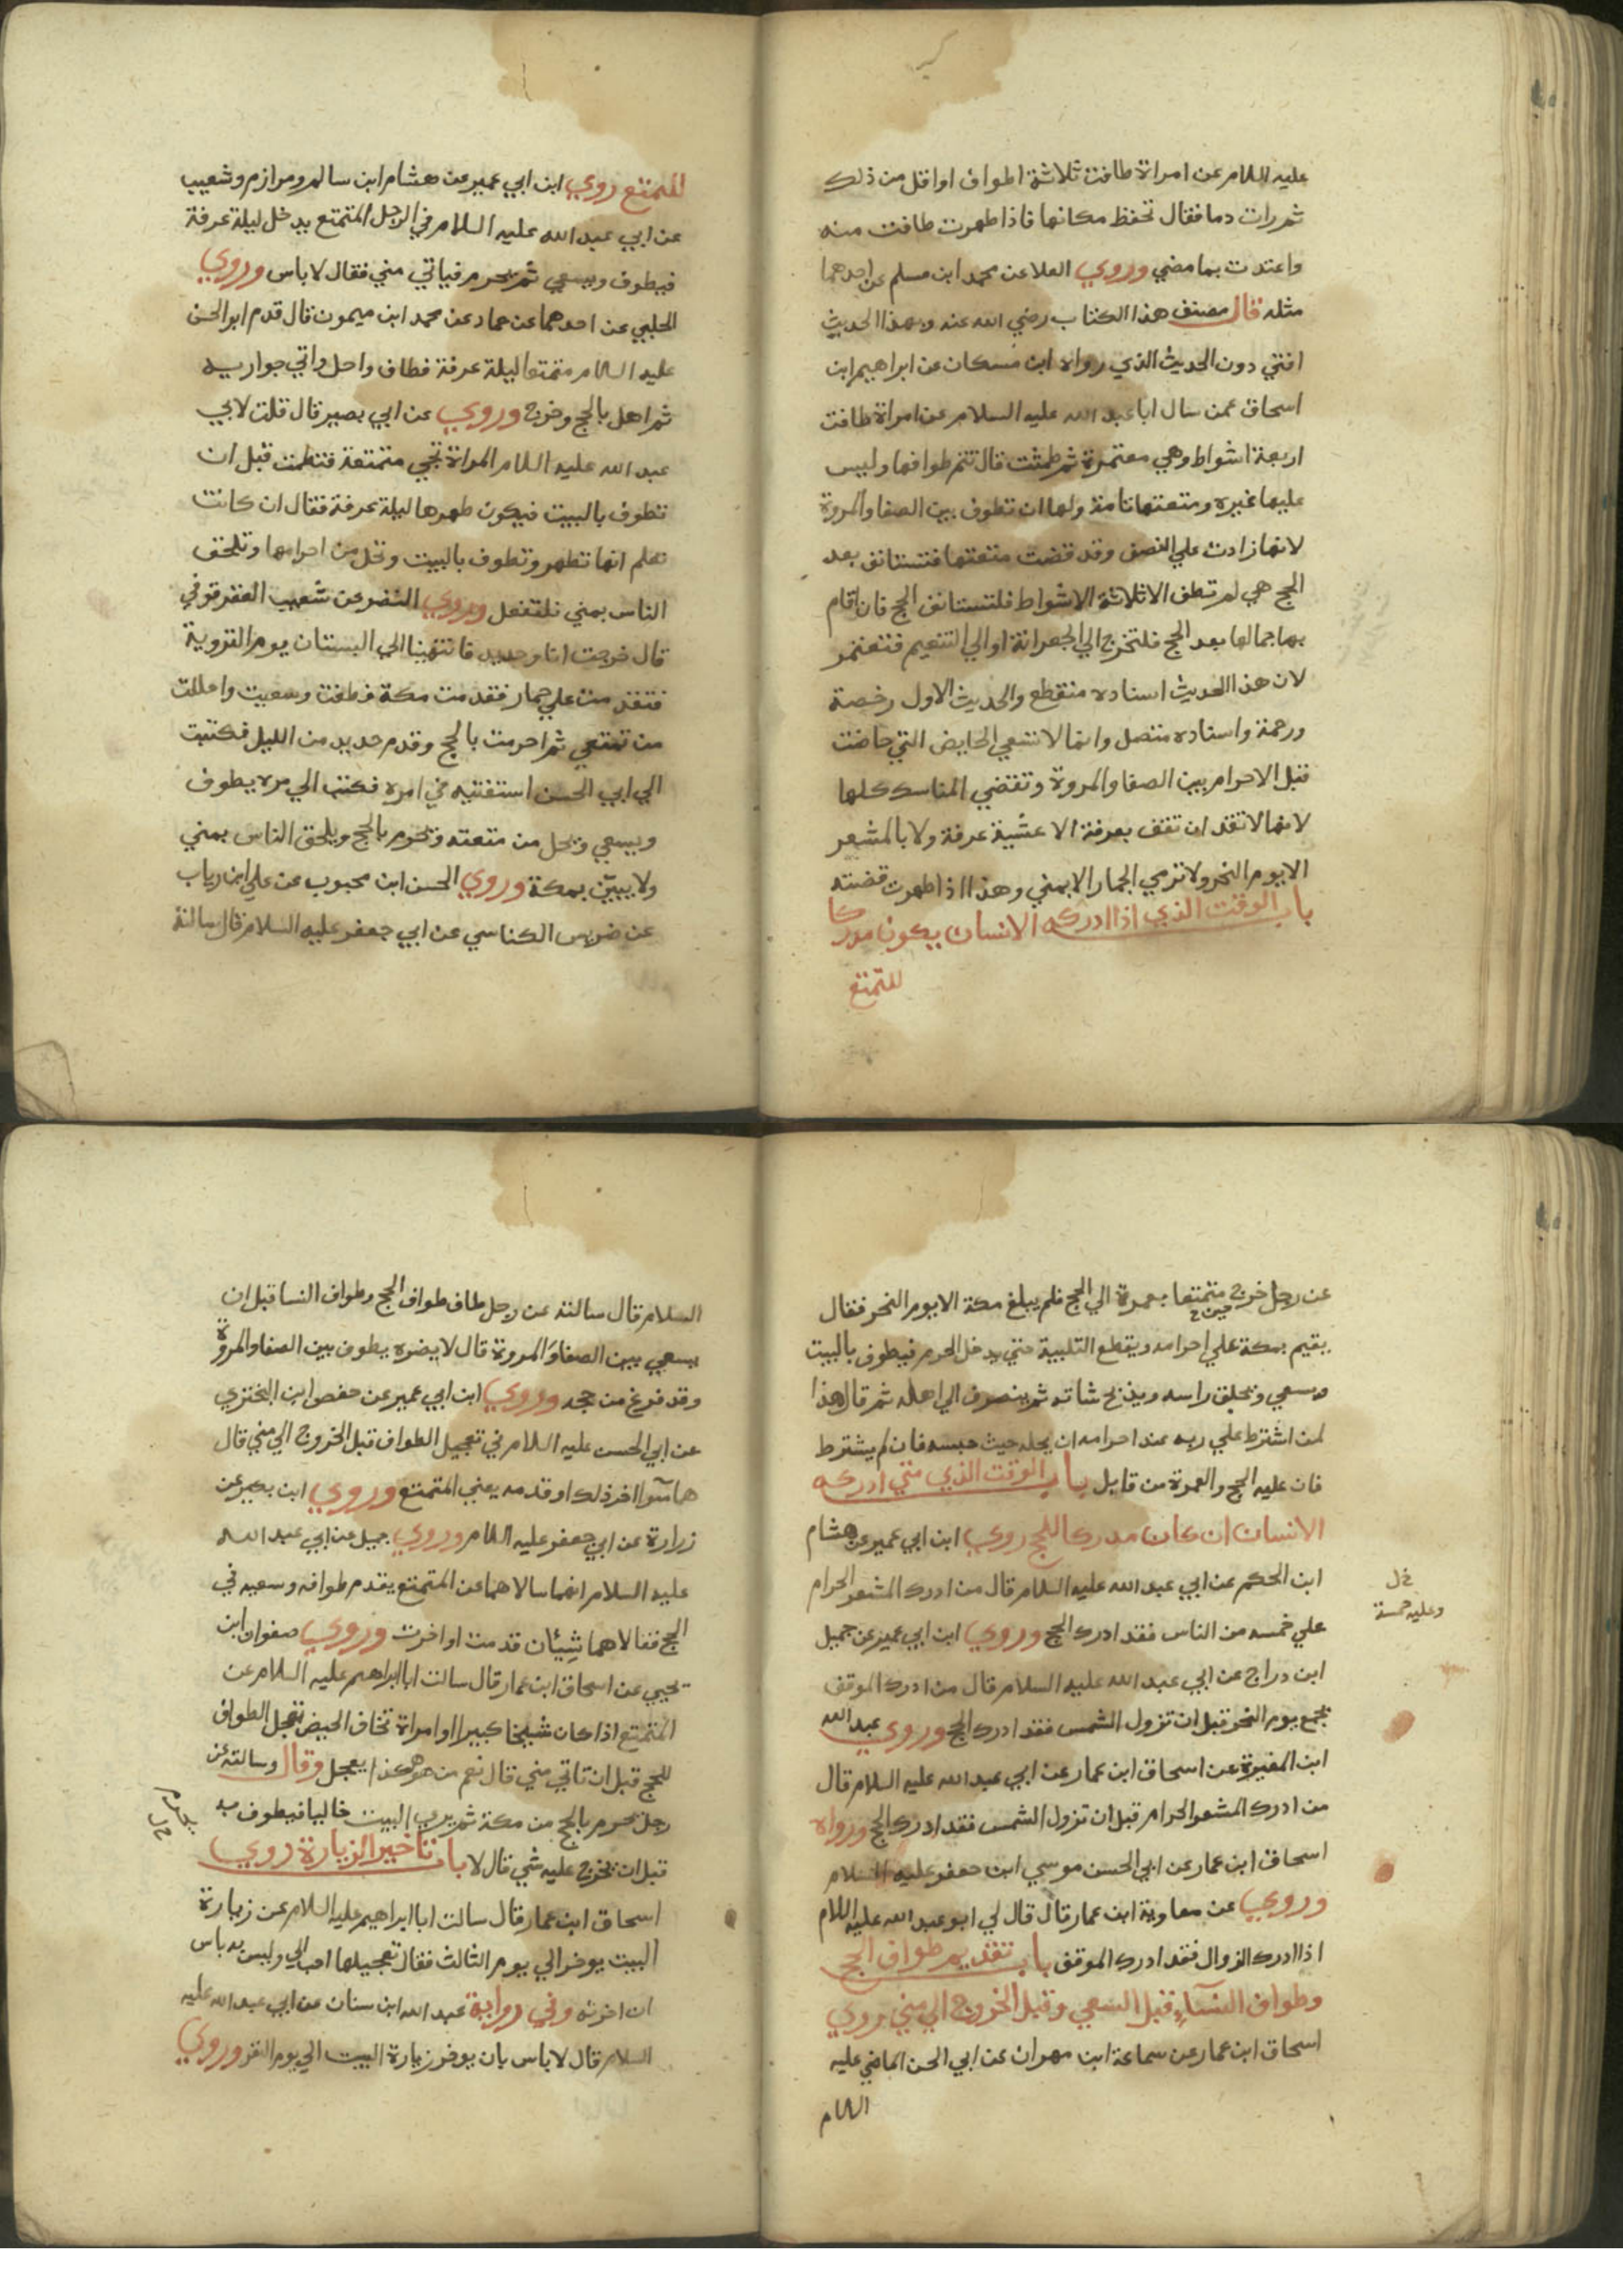 عليه السلام عن امراة طافت ثلاثة اطواف او اقل من ذلك
ثم رات دما فقال تحفظ مكانها فاذا طهرت طافت منه
واعتدت بما مضي وروي العلا عن محمد ابن مسلم عن احدهما
مثله قال مصنف هذا الكتاب رضي الله عنه وبهذا الحديث
افتي دون الحديث الذي رواه ابن مسكان عن ابراهيم ابن
اسحاق عمن سال ابا عبد الله عليه السلام عن امراة طافت
اربعة اشواط وهي معتمرة ثم طمثت قال تتم طوافها وليس
عليها غيره ومتعتها تامة ولها ان تطوف بين الصفا والمروة
لانها زادت علي النصف وقد قضت متعتها فتستانف بعد
الحج هي لم تطف الا ثلاثة الاشواط فلتستانف الحج فان اقام
بها جمالها بعد الحج فلتخرج الي الجعرانة او الي التنعيم فتعتمر
لان هذا الحديث اسناده منقطع والحديث الاول رخصة
ورحمة واسناده متصل وانما لا تسعي الحايض التي حاضت
قبل الاحرام بين الصفا والمروة وتقضي المناسك كلها
لانها لا تقدر ان تقف بعرفة الا عشية عرفة ولا بالمشعر
الا يوم النحر ولا ترمي الجمار الا بمني وهذا اذا طهرت قضته
باب الوقت الذي اذا ادركه الانسان يكون مدركا
للتمتع
للتمتع روي ابن ابي عمير عن هشام ابن سالم ومرازم وشعيب
عن ابي عبد الله عليه السلام في الرجل المتمتع يدخل ليلة عرفة
فيطوف ويسعي ثم يحرم فياتي مني فقال لا باس وروي
الحلبي عن احدهما عن حماد عن محمد ابن ميمون قال قدم ابو الحسن
عليه السلام متمتعا ليلة عرفة فطاف واحل واتي جواريه
ثم اهل بالحج وخرج وروي عن ابي بصير قال قلت لابي
عبد الله عليه السلام المراة تجي متمتعة فتطمث قبل ان
تطوف بالبيت فيكون طهرها ليلة عرفة فقال ان كانت
تعلم انها تطهر وتطوف بالبيت وتحل من احرامها وتلحق
الناس بمني فلتفعل وروي النضر عن شعيب العقرقوفي
قال خرجت انا وحديد فانتهينا الي البستان يوم التروية
فتقدمت علي حمار فقدمت مكة فطفت وسعيت واحللت
من تمتعي ثم احرمت بالحج وقدم حديد من الليل فكتبت
الي ابي الحسن استفتيه في امره فكتب الي مره يطوف
ويسعي ويحل من متعته ويحرم بالحج ويلحق الناس بمني
ولا يبيتن بمكة وروي الحسن ابن محبوب عن علي ابن رياب
عن ضريس الكناسي عن ابي جعفر عليه السلام قال سالته
عن رجل خرج متمتعا بعمرة الي الحج فلم يبلغ مكة الا يوم النحر فقال
يقيم بمكة علي احرامه ويقطع التلبية حتي يدخل الحرم فيطوف بالبيت
حين خ
ويسعي ويحلق راسه ويذبح شاته ثم ينصرف الي اهله ثم قال هذا
لمن اشترط علي ربه عند احرامه ان يحله حيث حبسه فان لم يشترط
فان عليه الحج والعمرة من قابل باب الوقت الذي متي ادركه
الانسان ان كان مدركا للحج روي ابن ابي عمير عن هشام
ابن الحكم عن ابي عبد الله عليه السلام قال من ادرك المشعر الحرام
علي خمسه من الناس فقد ادرك الحج وروي ابن ابي عمير عن جميل
خ ل
وعليه خمسة
ابن دراج عن ابي عبد الله عليه السلام قال من ادرك الموقف
بجمع يوم النحر قبل ان تزول الشمس فقد ادرك الحج وروي عبد الله
ابن المغيرة عن اسحاق ابن عمار عن ابي عبد الله عليه السلام قال
من ادرك المشعر الحرام قبل ان تزول الشمس فقد ادرك الحج ورواه
اسحاق ابن عمار عن ابي الحسن موسي ابن جعفر عليه السلام
وروي عن معاوية ابن عمار قال قال لي ابو عبد الله عليه السلام
اذا ادرك الزوال فقد ادرك الموقف باب تقديم طواف الحج
وطواف النسآء قبل السعي وقبل الخروج الي مني روي
اسحاق ابن عمار عن سماعة ابن مهران عن ابي الحسن الماضي عليه
السلام
السلام قال سالته عن رجل طاف طواف الحج وطواف النسا قبل ان
يسعي بين الصفا والمروة قال لا يضره يطوف بين الصفا والمروة
وقد فرغ من حجه وروي ابن ابي عمير عن حفص ابن البختري
عن ابي الحسن عليه السلام في تعجيل الطواف قبل الخروج الي مني قال
هما سوآ اخر ذلك او قدمه يعني المتمتع وروي ابن بكير عن
زرارة عن ابي جعفر عليه السلام وروي جميل عن ابي عبد الله
عليه السلام انهما سالاهما عن المتمتع يقدم طوافه وسعيه في
الحج فقالا هما شيئان قدمت او اخرت وروي صفوان ابن
يحيي عن اسحاق ابن عمار قال سالت ابا ابراهيم عليه السلام عن
المتمتع اذا كان شيخا كبيرا او امراة تخاف الحيض تعجل الطواف
للحج قبل ان تاتي مني قال نعم من هو هكذا يعجل وقال وسالته عن
رجل يحرم بالحج من مكة ثم يري البيت خاليا فيطوف به
يحرم
خ ل
قبل ان يخرج عليه شي قال لا باب تاخير الزيارة روي
اسحاق ابن عمار قال سالت ابا ابراهيم عليه السلام عن زيارة
البيت يوخر الي يوم الثالث فقال تعجيلها احب الي وليس به باس
ان اخرته وفي رواية عبد الله ابن سنان عن ابي عبد الله عليه
السلام قال لا باس بان يوخر زيارة البيت الي يوم النفر وروي